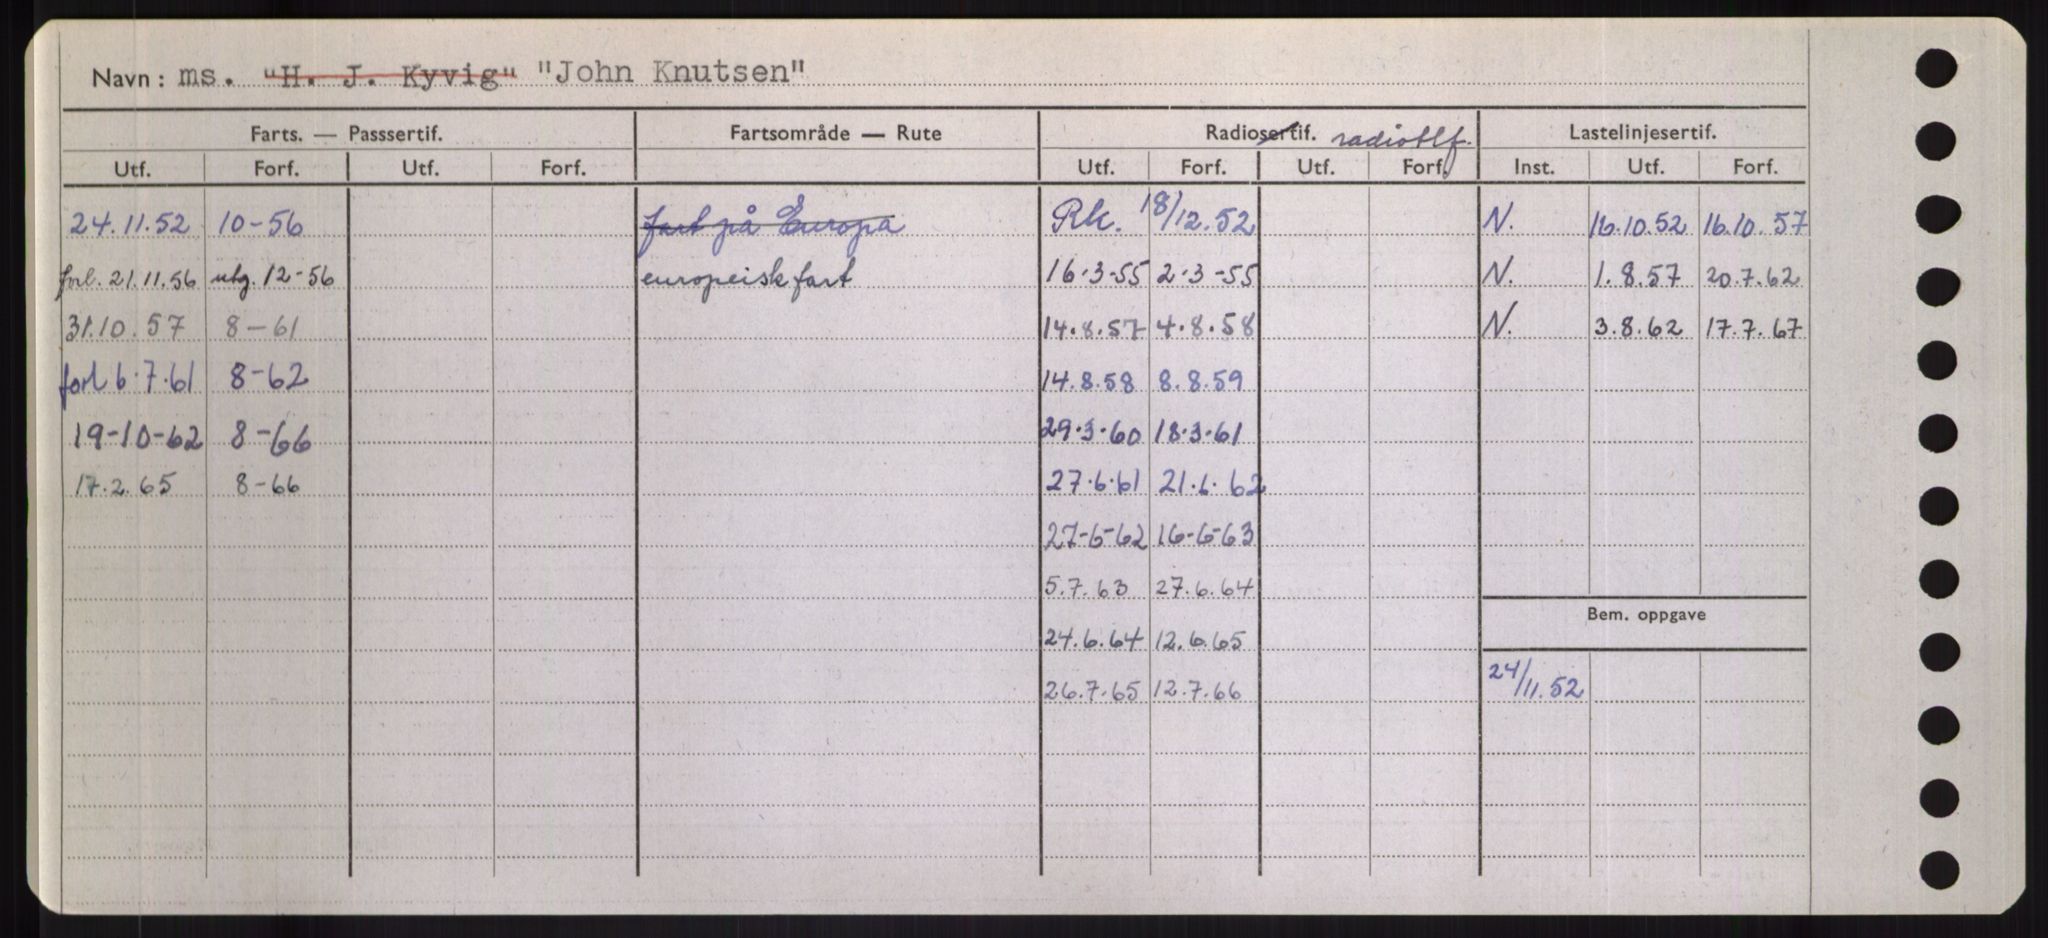 Navn: ms. "H. J. Kyvig" "John Knutsen"
Farts. — Passsertif. Fartsområde — Rute Radiosertif. radiotlf. Lastelinjesertif.
Utf. Forf. Utf. Forf. Utf. Forf. Utf. Forf. Inst. Utf. Forf.
24.11.52 10-56 fart på Europa Rk. 18/12.52 N. 16.10.52 16.10.57
forl. 21.11.56 utg. 12-56 europeisk fart 16.3-55 2.3-55 N. 1.8.57 20.7.62
31.10.57 8-61 14.8.57 4.8.58 N. 3.8.62 17.7.67
forl 6.7.61 8-62 14.8.58 8.8.59
19-10-62 8-66 29.3.60 18.3.61
17.2.65 8-66 27.6.61 21.6.62
27-6-62 16-6-63
5.7.63 27.6.64
Bem. oppgave
24.6.64 12.6.65
26.7.65 12.7.66 24/11.52